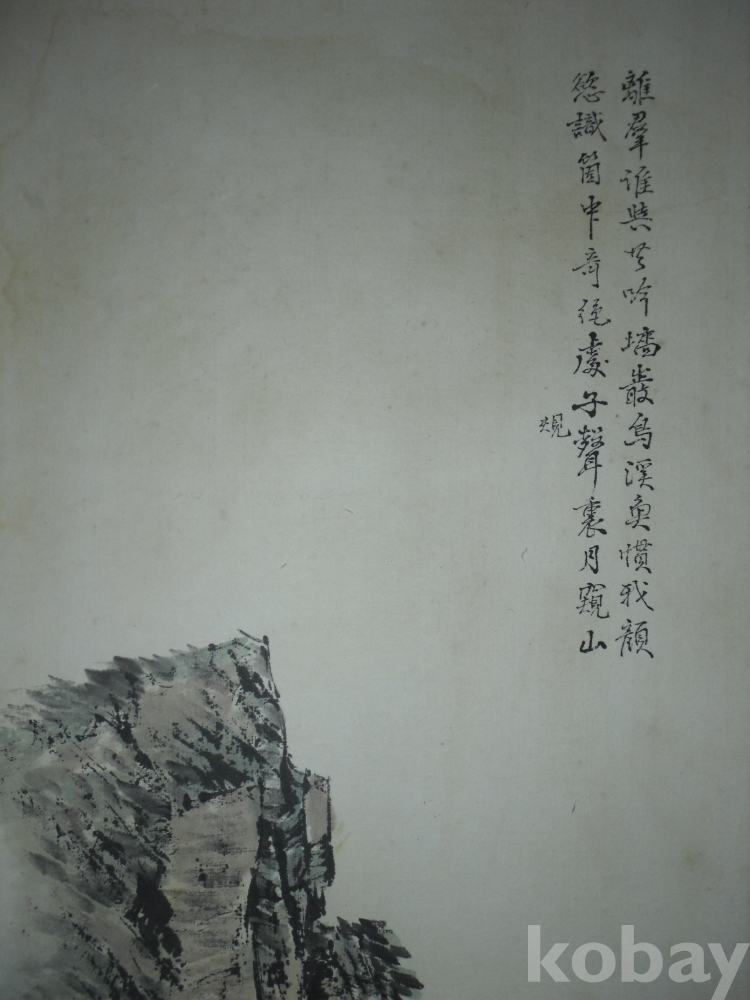 離羣誰與共吟壇巖鳥溪魚慣我顔
慾識箇中奇絶處子聲裏月窺山
規
kobay